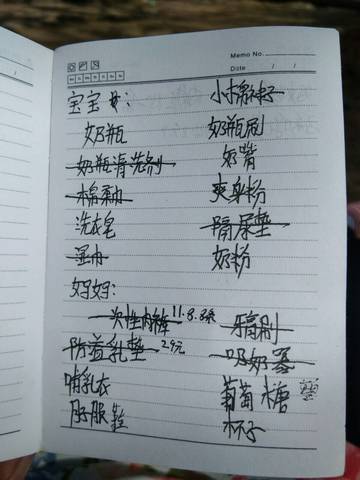 Memo No.
Date / /
宝宝用: 小棉袜子
奶瓶 奶瓶刷
奶瓶清洗剂 奶嘴
棉柔巾 爽身粉
洗衣皂 隔尿垫
湿巾 奶粉
妈妈:
一次性内裤 11.8.8条 牙膏刷
防溢乳垫 29元 吸奶器
哺乳衣 葡萄糖
月子服 鞋 杯子